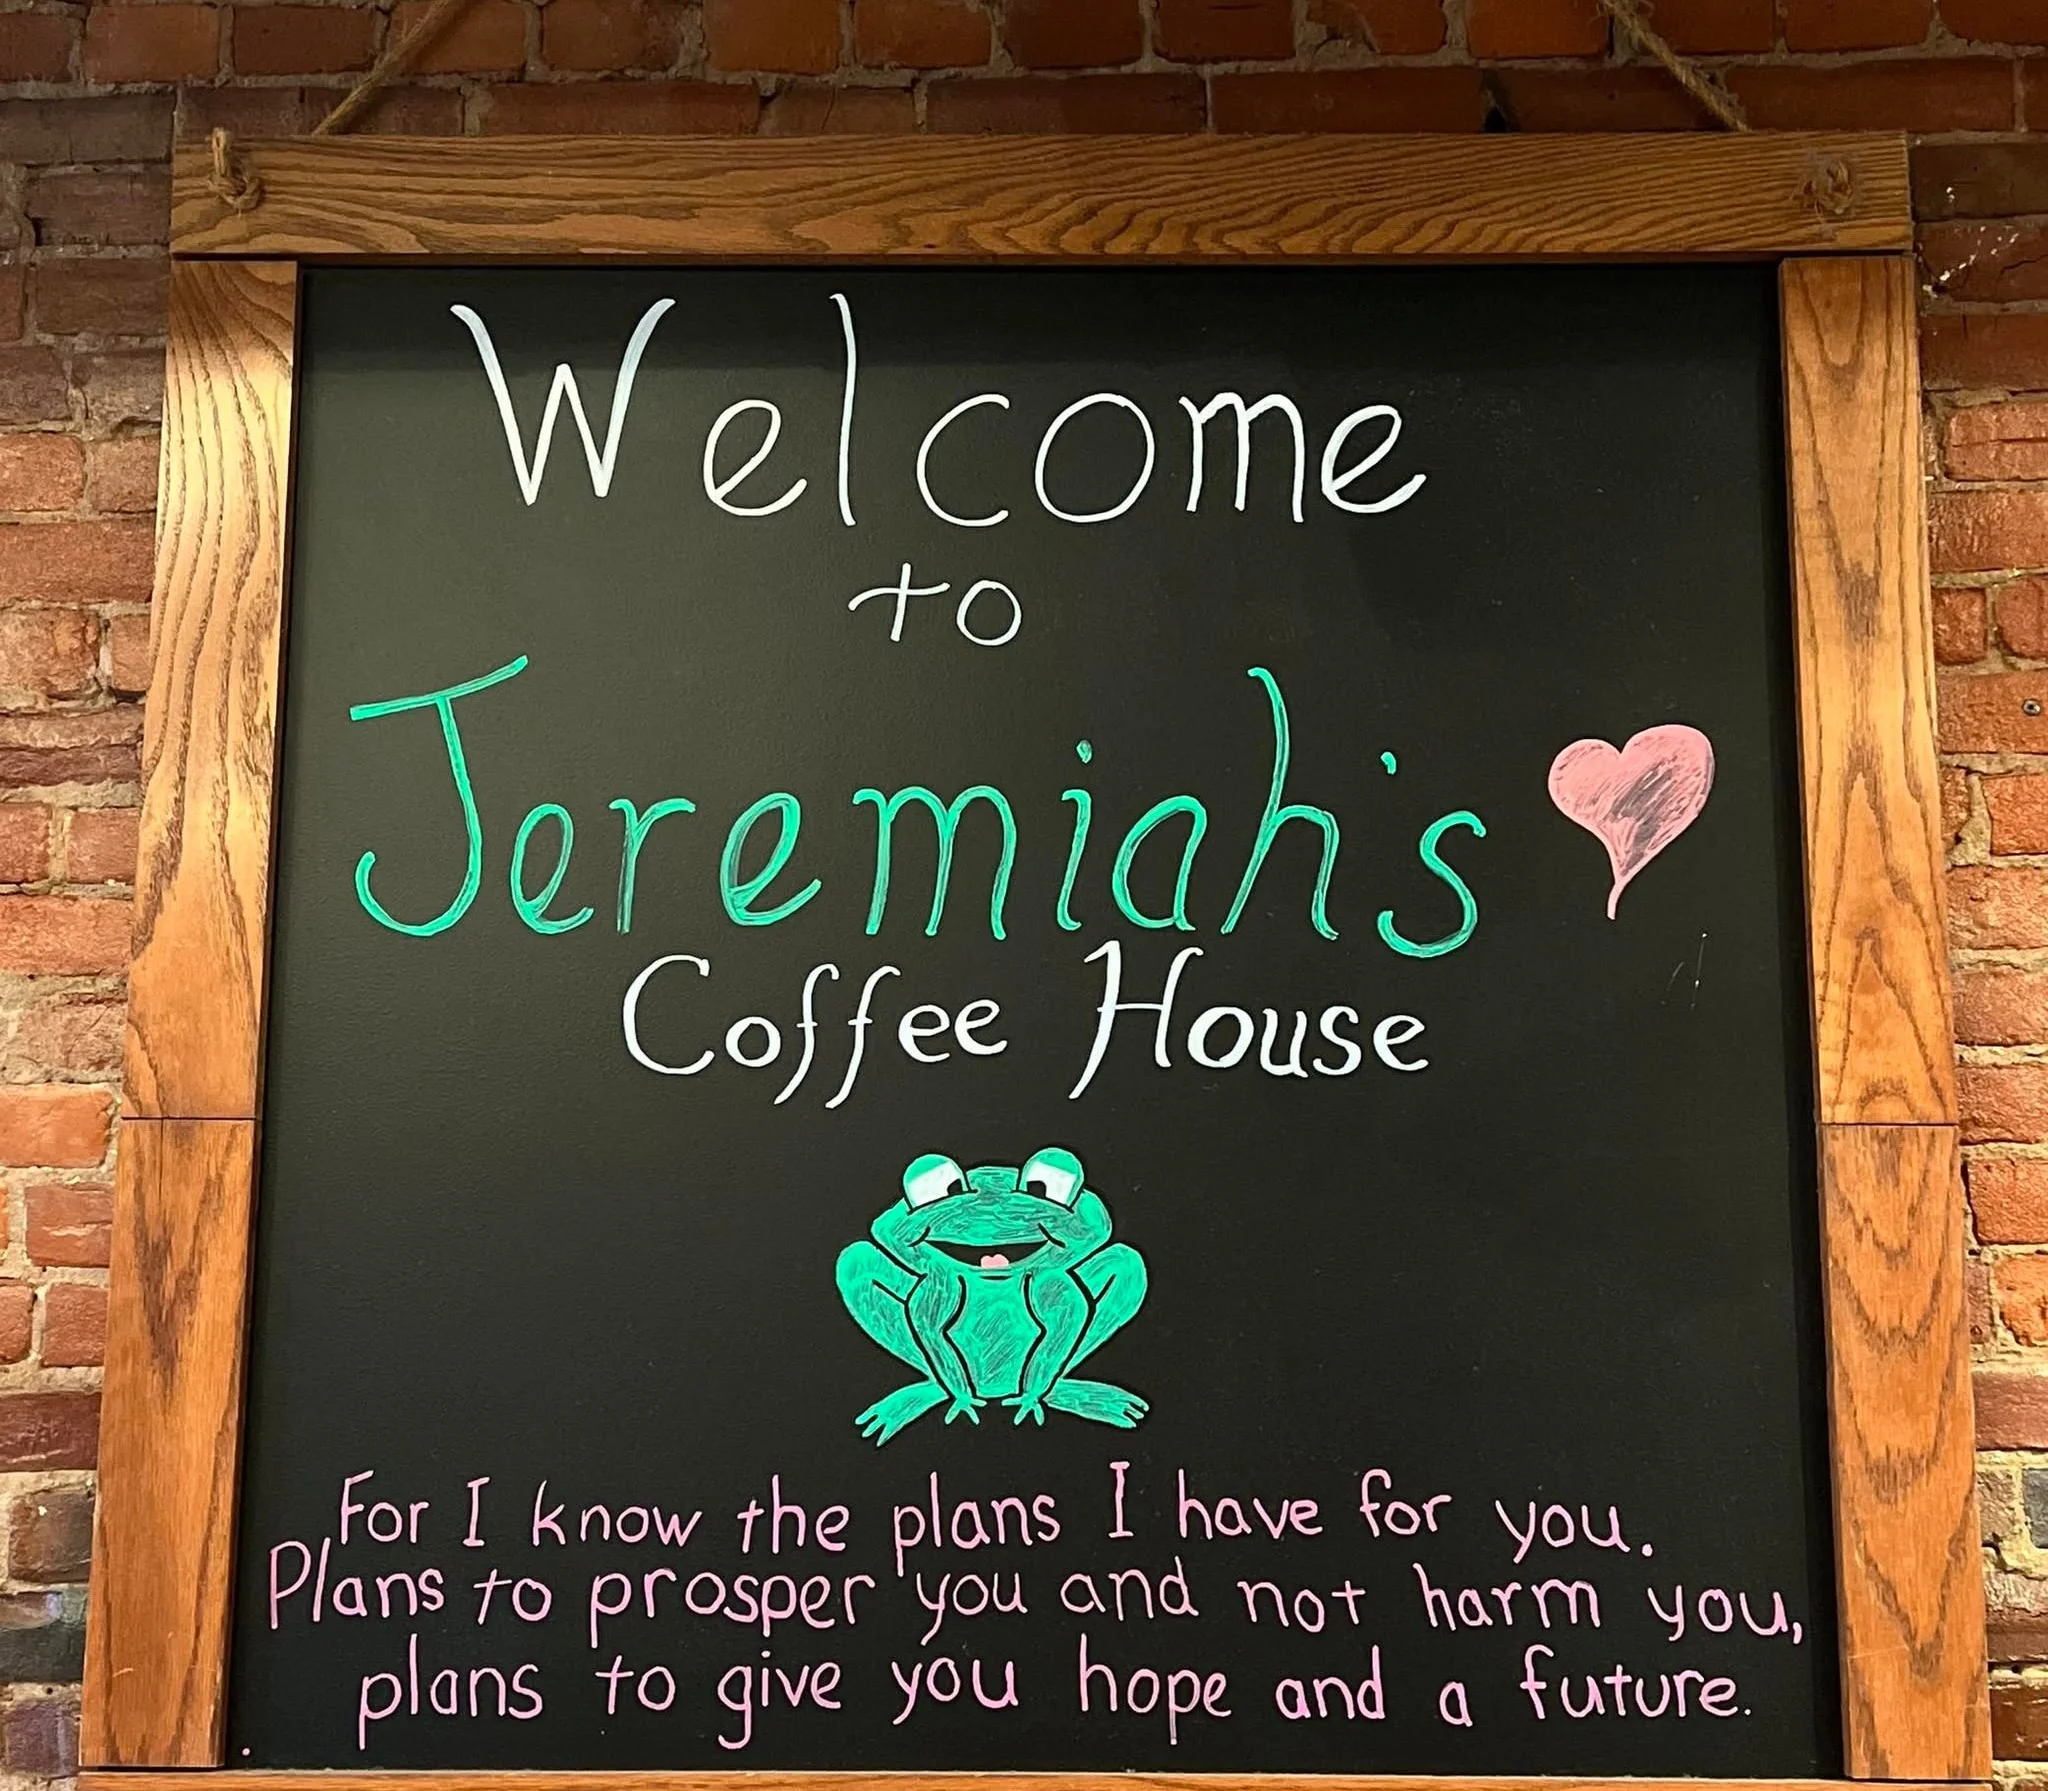 Welcome
to
Jeremiah's
Coffee House
For I know the plans I have for you.
Plans to prosper you and not harm you,
plans to give you hope and a future.